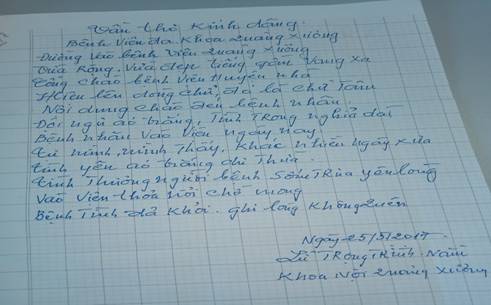 Vần thơ Kính dâng
Bệnh viện đa Khoa Quảng Xương
Đường vào bệnh viện Quảng Xương
Vừa Rộng, vừa đẹp tiếng gồm vang xa
Cổng chào bệnh viện huyện nhà
Hiện lên dòng chữ, đó là chữ Tâm
Nội dung chào đến bệnh nhân
Đội ngũ áo trắng, Tình Trong nghĩa dài
Bệnh nhân vào viện ngày nay
tự mình, mình Thấy, Khác nhiều ngày xưa
tình yêu áo trắng dạ Thưa
tình Thương người bệnh sớm Trưa yên lòng
vào viện thỏa nỗi chờ mong
Bệnh Tình đã Khỏi. ghi lòng Không Quên
Ngày 25/5/2017
Lê Trọng Trình Nam
Khoa Nội Quảng Xương